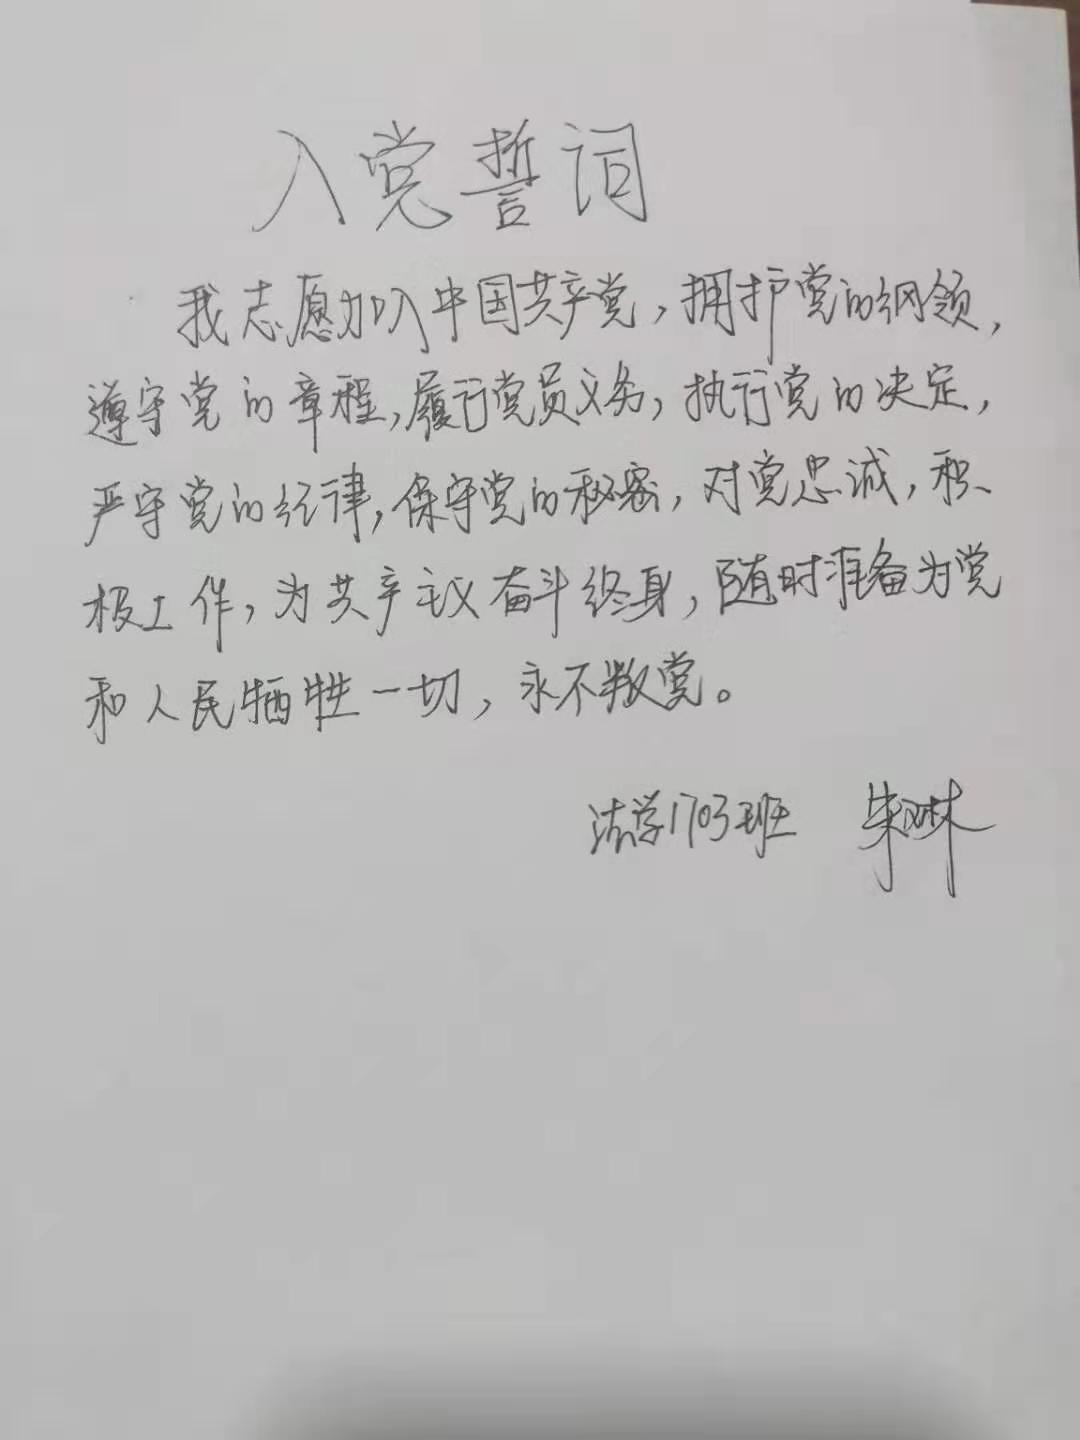 入党誓词
我志愿加入中国共产党，拥护党的纲领，
遵守党的章程，履行党员义务，执行党的决定，
严守党的纪律，保守党的秘密，对党忠诚，积
极工作，为共产主义奋斗终身，随时准备为党
和人民牺牲一切，永不叛党。
法学1703班 朱